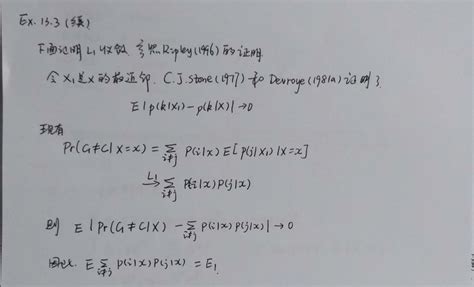 Ex. 13.3 (续)
下面证明 L₁ 收敛, 参照 Ripley (1996) 的证明.
令 X₁ 是 X 的最近邻. C.J. Stone (1977) 和 Devroye (1981a) 证明了
E | p(k|X₁) - p(k|X) | → 0
现有
Pr(C₁≠C|X=x) = ∑_{i≠j} P(i|x) E[p(j|X₁)|X=x]
L₁→ ∑_{i≠j} P(i|x) P(j|x)
则 E | Pr(C₁≠C|X) - ∑_{i≠j} P(i|x) P(j|x) | → 0
因此, E ∑_{i≠j} P(i|x) P(j|x) = E₁.